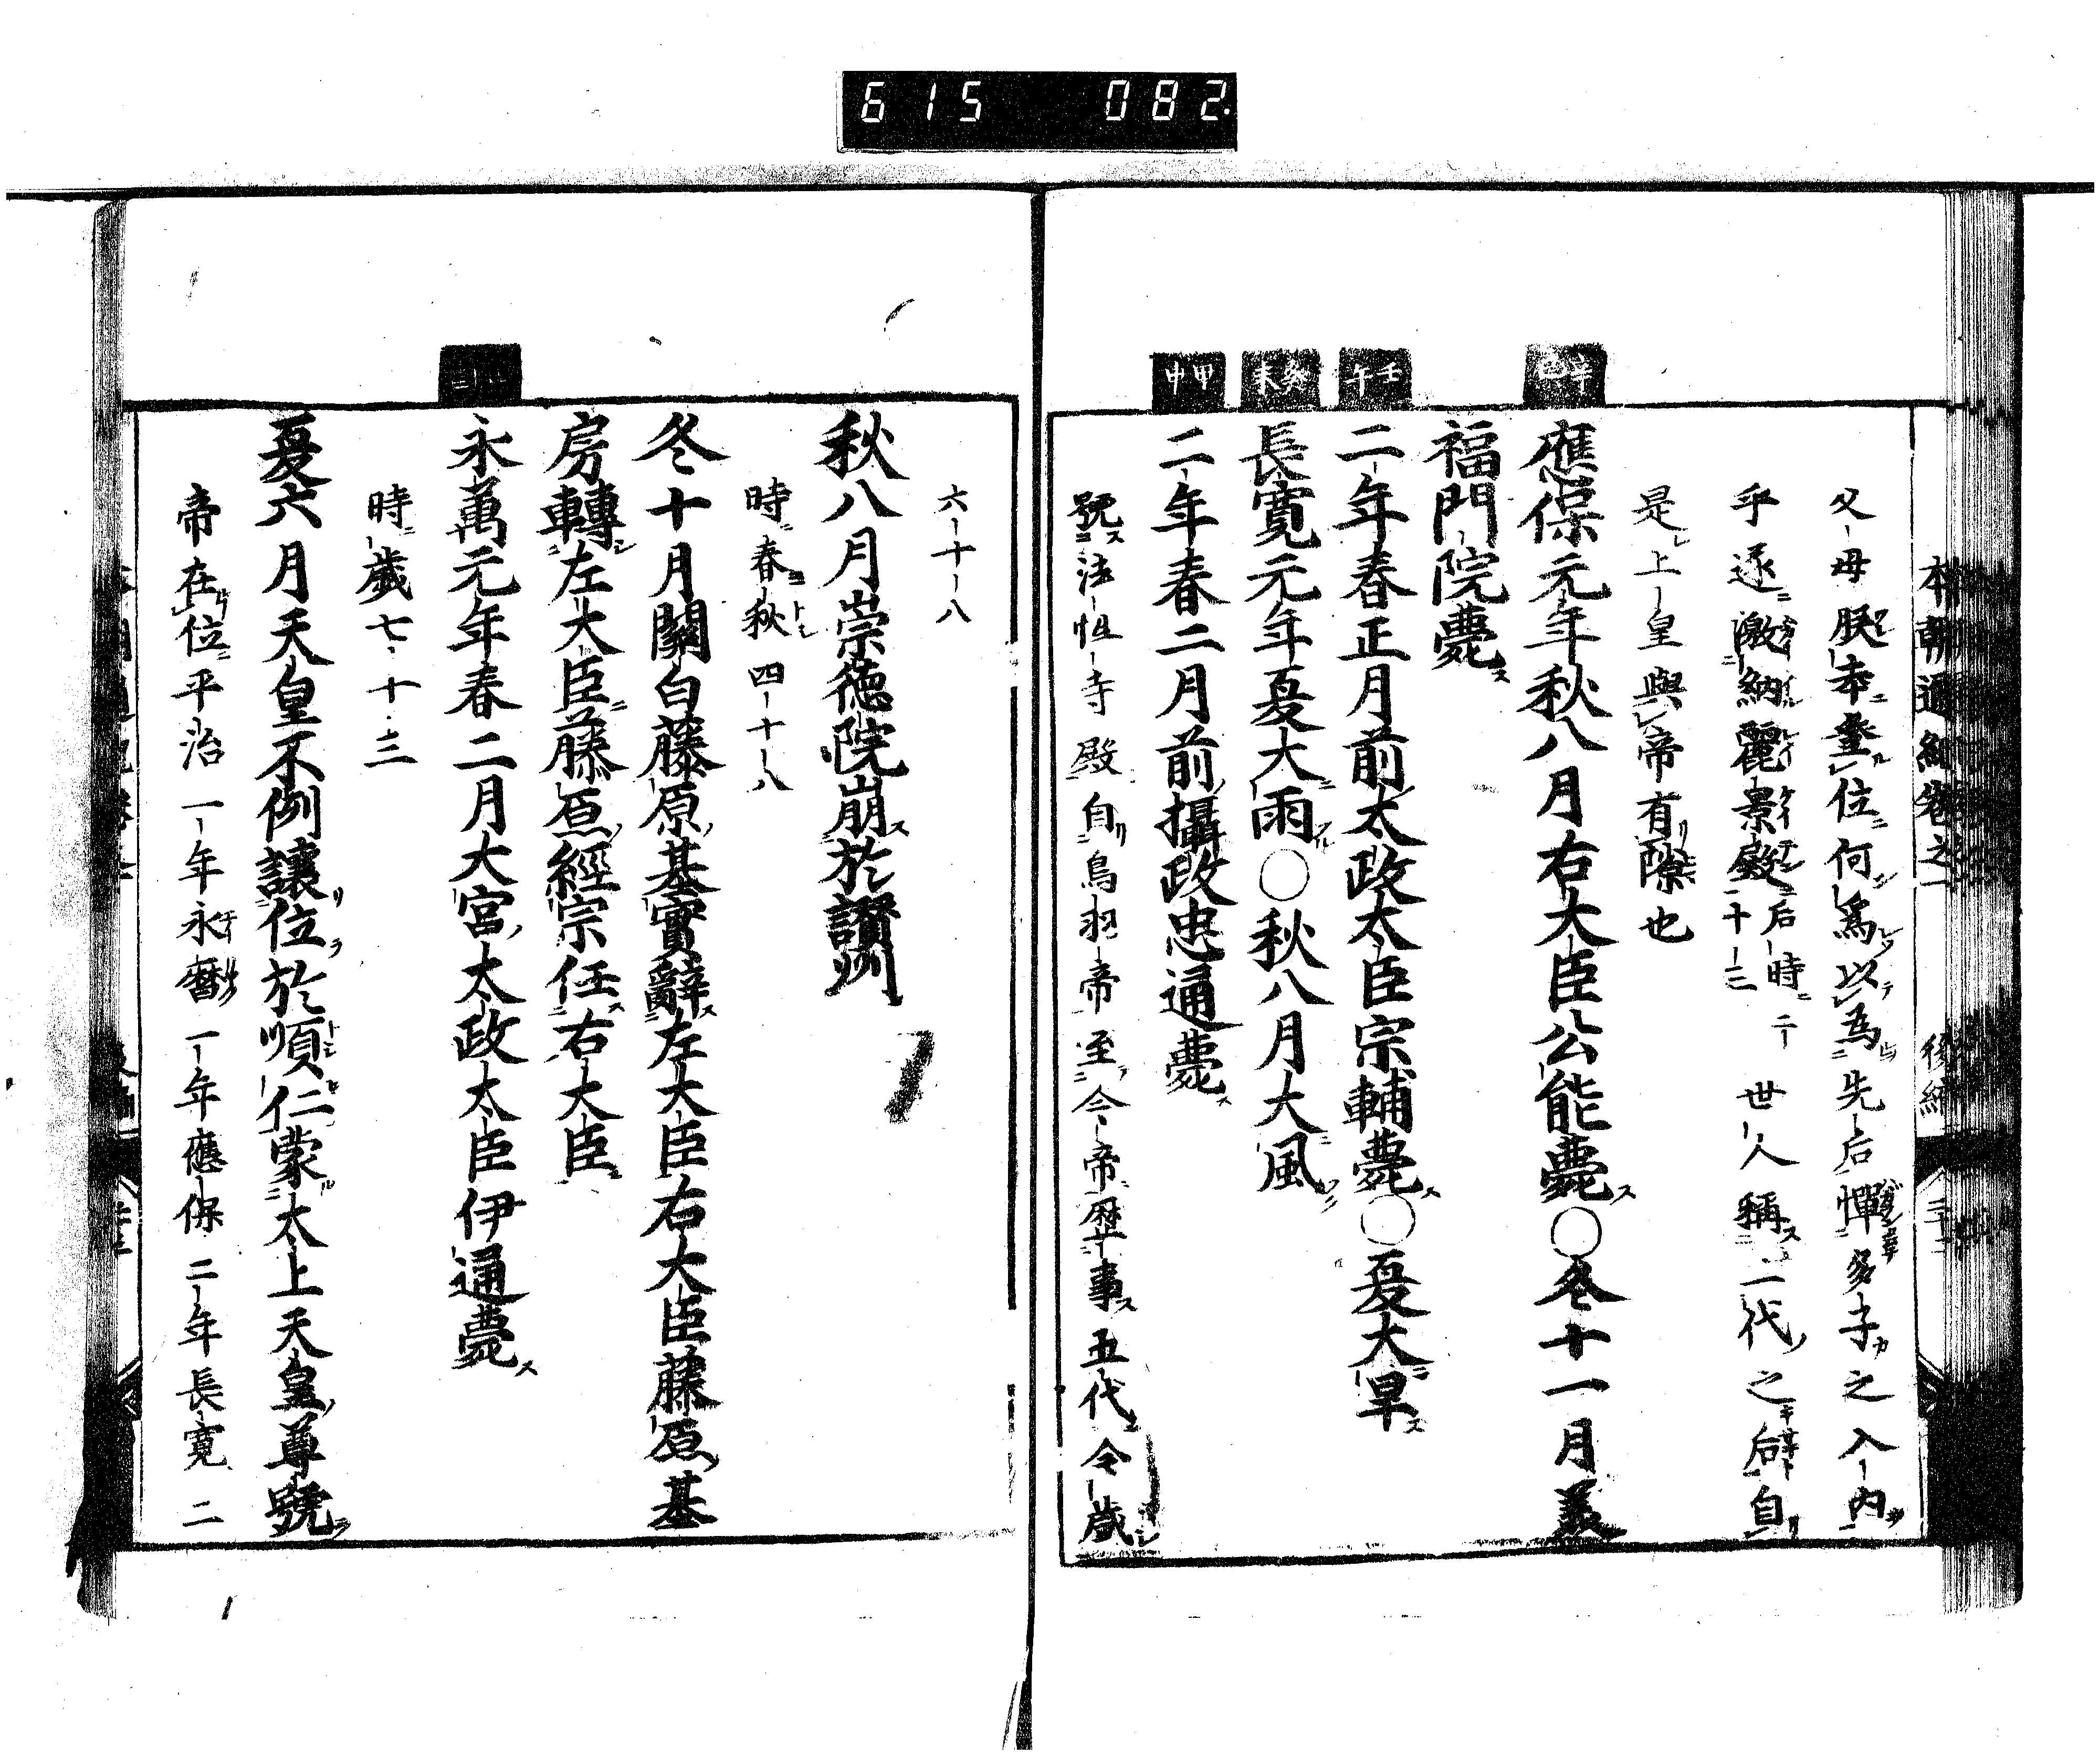 615 082
本朝通紀卷之一 後編
父母朕本登位何爲以為先后憚多子之入内
乎遂激納麗景殿后時二十三世人稱二代之后自
是上皇與帝有隙也
辛巳
應保元年秋八月右大臣公能薨○冬十一月美
福門院薨
壬午
二年春正月前太政太臣宗輔薨○夏大旱
癸未
長寬元年夏大雨○秋八月大風
甲申
二年春二月前攝政忠通薨
號法性寺殿自鳥羽帝至今帝歷事五代今歲
六十八
秋八月崇德院崩於讚州
時春秋四十八
冬十月關白藤原基實辭左大臣右大臣藤原基
房轉左大臣藤原經宗任右大臣
永萬元年春二月大宮太政太臣伊通薨
時歲七十三
夏六月天皇不例讓位於順仁蒙太上天皇尊號
帝在位平治一年永曆一年應保二年長寬二